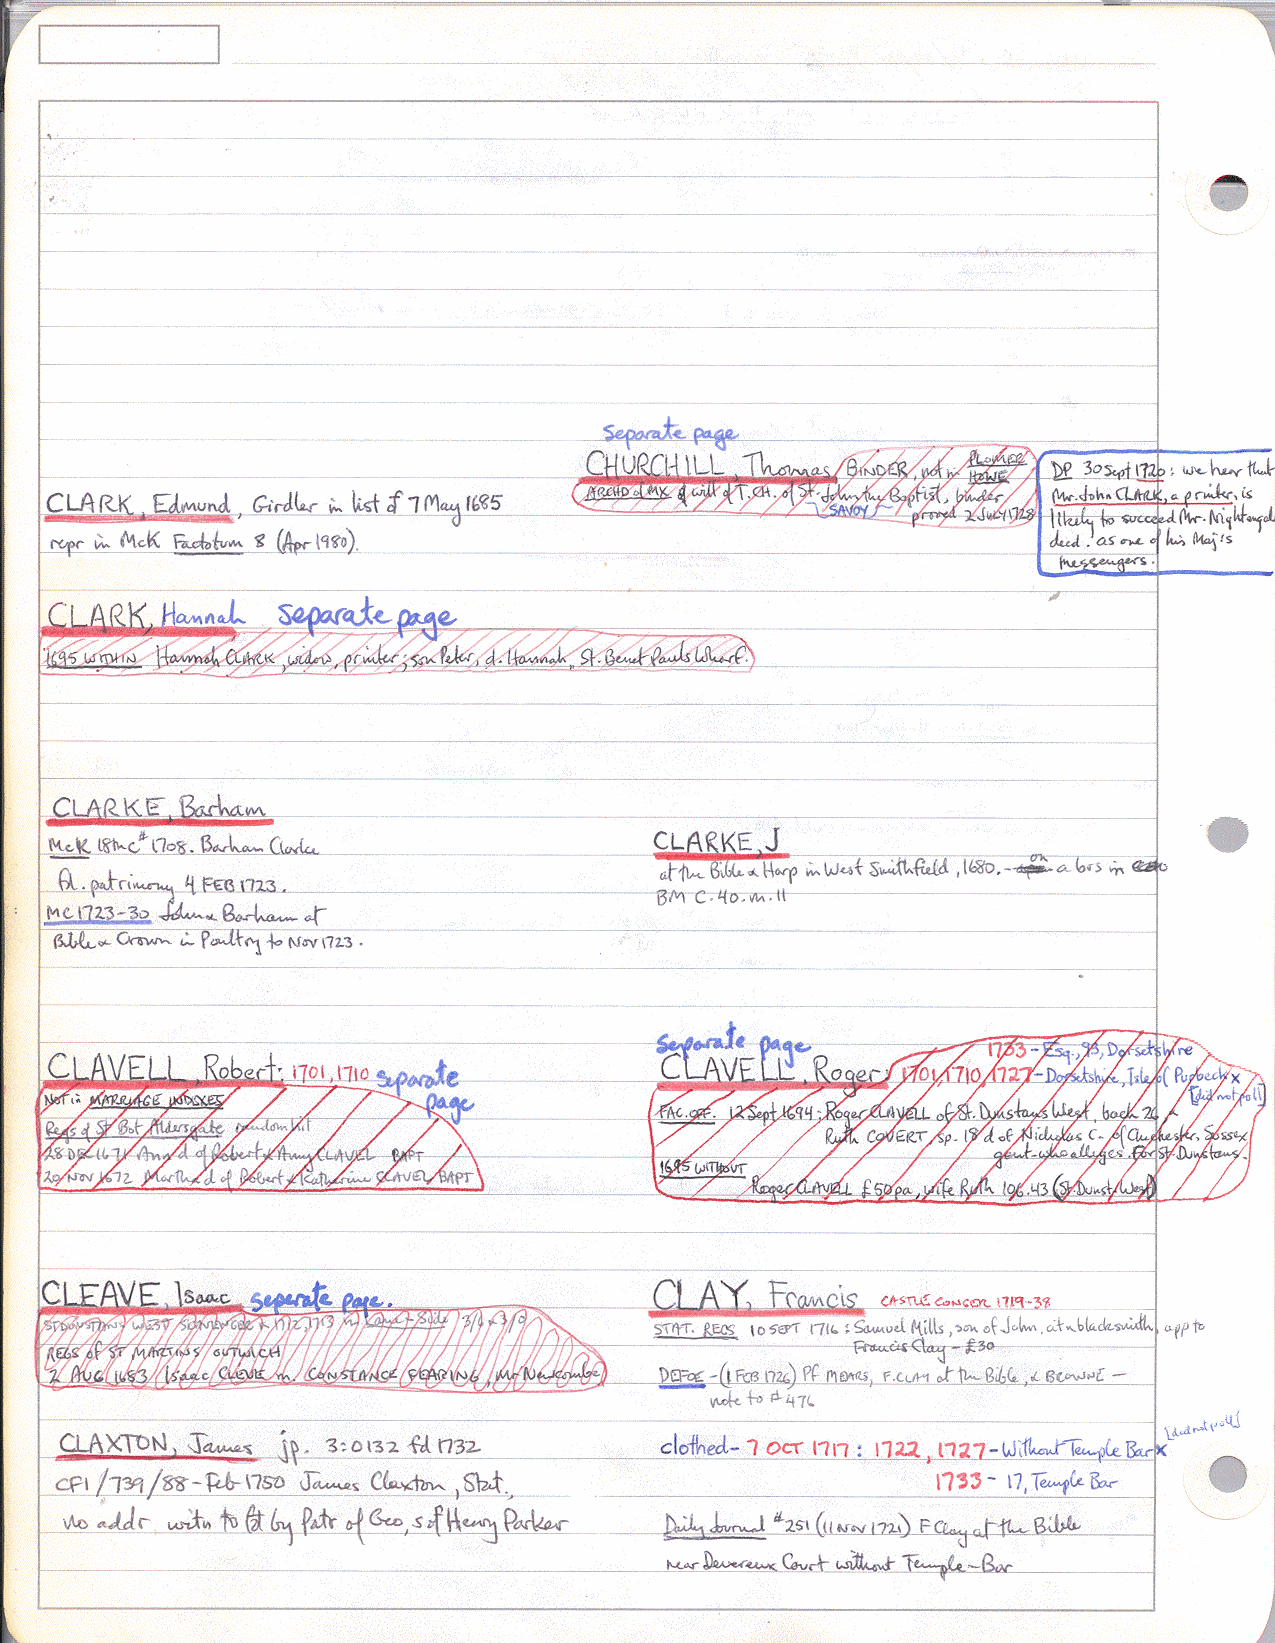 separate page
CHURCHILL, Thomas, BINDER, not in PLOMER
HOWE
ARCHD of MX of will of T. CH. of St. John the Baptist, binder
SAVOY proved 2 JULY 1728
DP 30 Sept 1720: we hear that
Mr. John CLARK, a printer, is
likely to succeed Mr. Nightengale
decd. as one of his Maj's
messengers.
CLARK, Edmund, Girdler in list of 7 May 1685
repr in McK Factotum 8 (Apr 1980).
CLARK, Hannah separate page
1695 WITHIN Hannah CLARK, widow, printer; son Peter, d. Hannah, St. Benet Pauls Wharf.
CLARKE, Barham
McK 18th c # 1708. Barham Clarke
fd. patrimony 4 FEB 1723.
MC 1723-30 John & Barham at
Bible & Crown in Poultry to Nov 1723.
CLARKE, J
at the Bible & Harp in West Smithfield, 1680. - on a brs in
BM C.40.m.11
CLAVELL, Robert: 1701, 1710 separate
page
Not in MARRIAGE INDEXES
Regs of St Bot Aldersgate random hit
28 DEC 1671 Ann d of Robert & Amy CLAVEL BAPT
20 NOV 1672 Martha d of Robert & Katherine CLAVEL BAPT
separate page
1733 - Esq., 93, Dorsetshire
CLAVELL, Roger: 1701, 1710, 1727 - Dorsetshire, Isle of Purbeck x
[did not poll]
FAC. OFF. 12 Sept 1694: Roger CLAVELL of St. Dunstans West, bach 26,
Ruth COVERT, sp. 18 d of Nicholas C- of Chichester, Sussex
gent - who alleges. For St. Dunstans.
1695 WITHOUT
Roger CLAVELL £50 pa, wife Ruth 106.43 (St. Dunst. West)
CLEAVE, Isaac separate page.
ST DUNSTANS WEST SCAVENGER & 1712, 1713 in Land-Side 3/0 & 3/0
REGS OF ST MARTINS OUTWICH
2 AUG 1683 Isaac CLEVE m. CONSTANCE FEARING, Mr Newcombe
CLAY, Francis CASTLE CONGER 1719-38
STAT. REGS 10 SEPT 1716: Samuel Mills, son of John, citn blacksmith, app to
Francis Clay - £30
DEFOE - (1 FEB 1726) Pf MEARS, F. CLAY at the Bible, & BROWNE -
note to # 476
CLAXTON, James jp. 3:0132 fd 1732
CF1/739/88 - Feb 1750 James Claxton, Stat.,
no addr. witn to fdt by Patr of Geo, s of Henry Parker
[did not poll]
clothed - 7 OCT 1717: 1722, 1727 - Without Temple Bar x
1733 - 17, Temple Bar
Daily Journal # 251 (11 Nov 1721) F Clay at the Bible
near Devereux Court without Temple-Bar